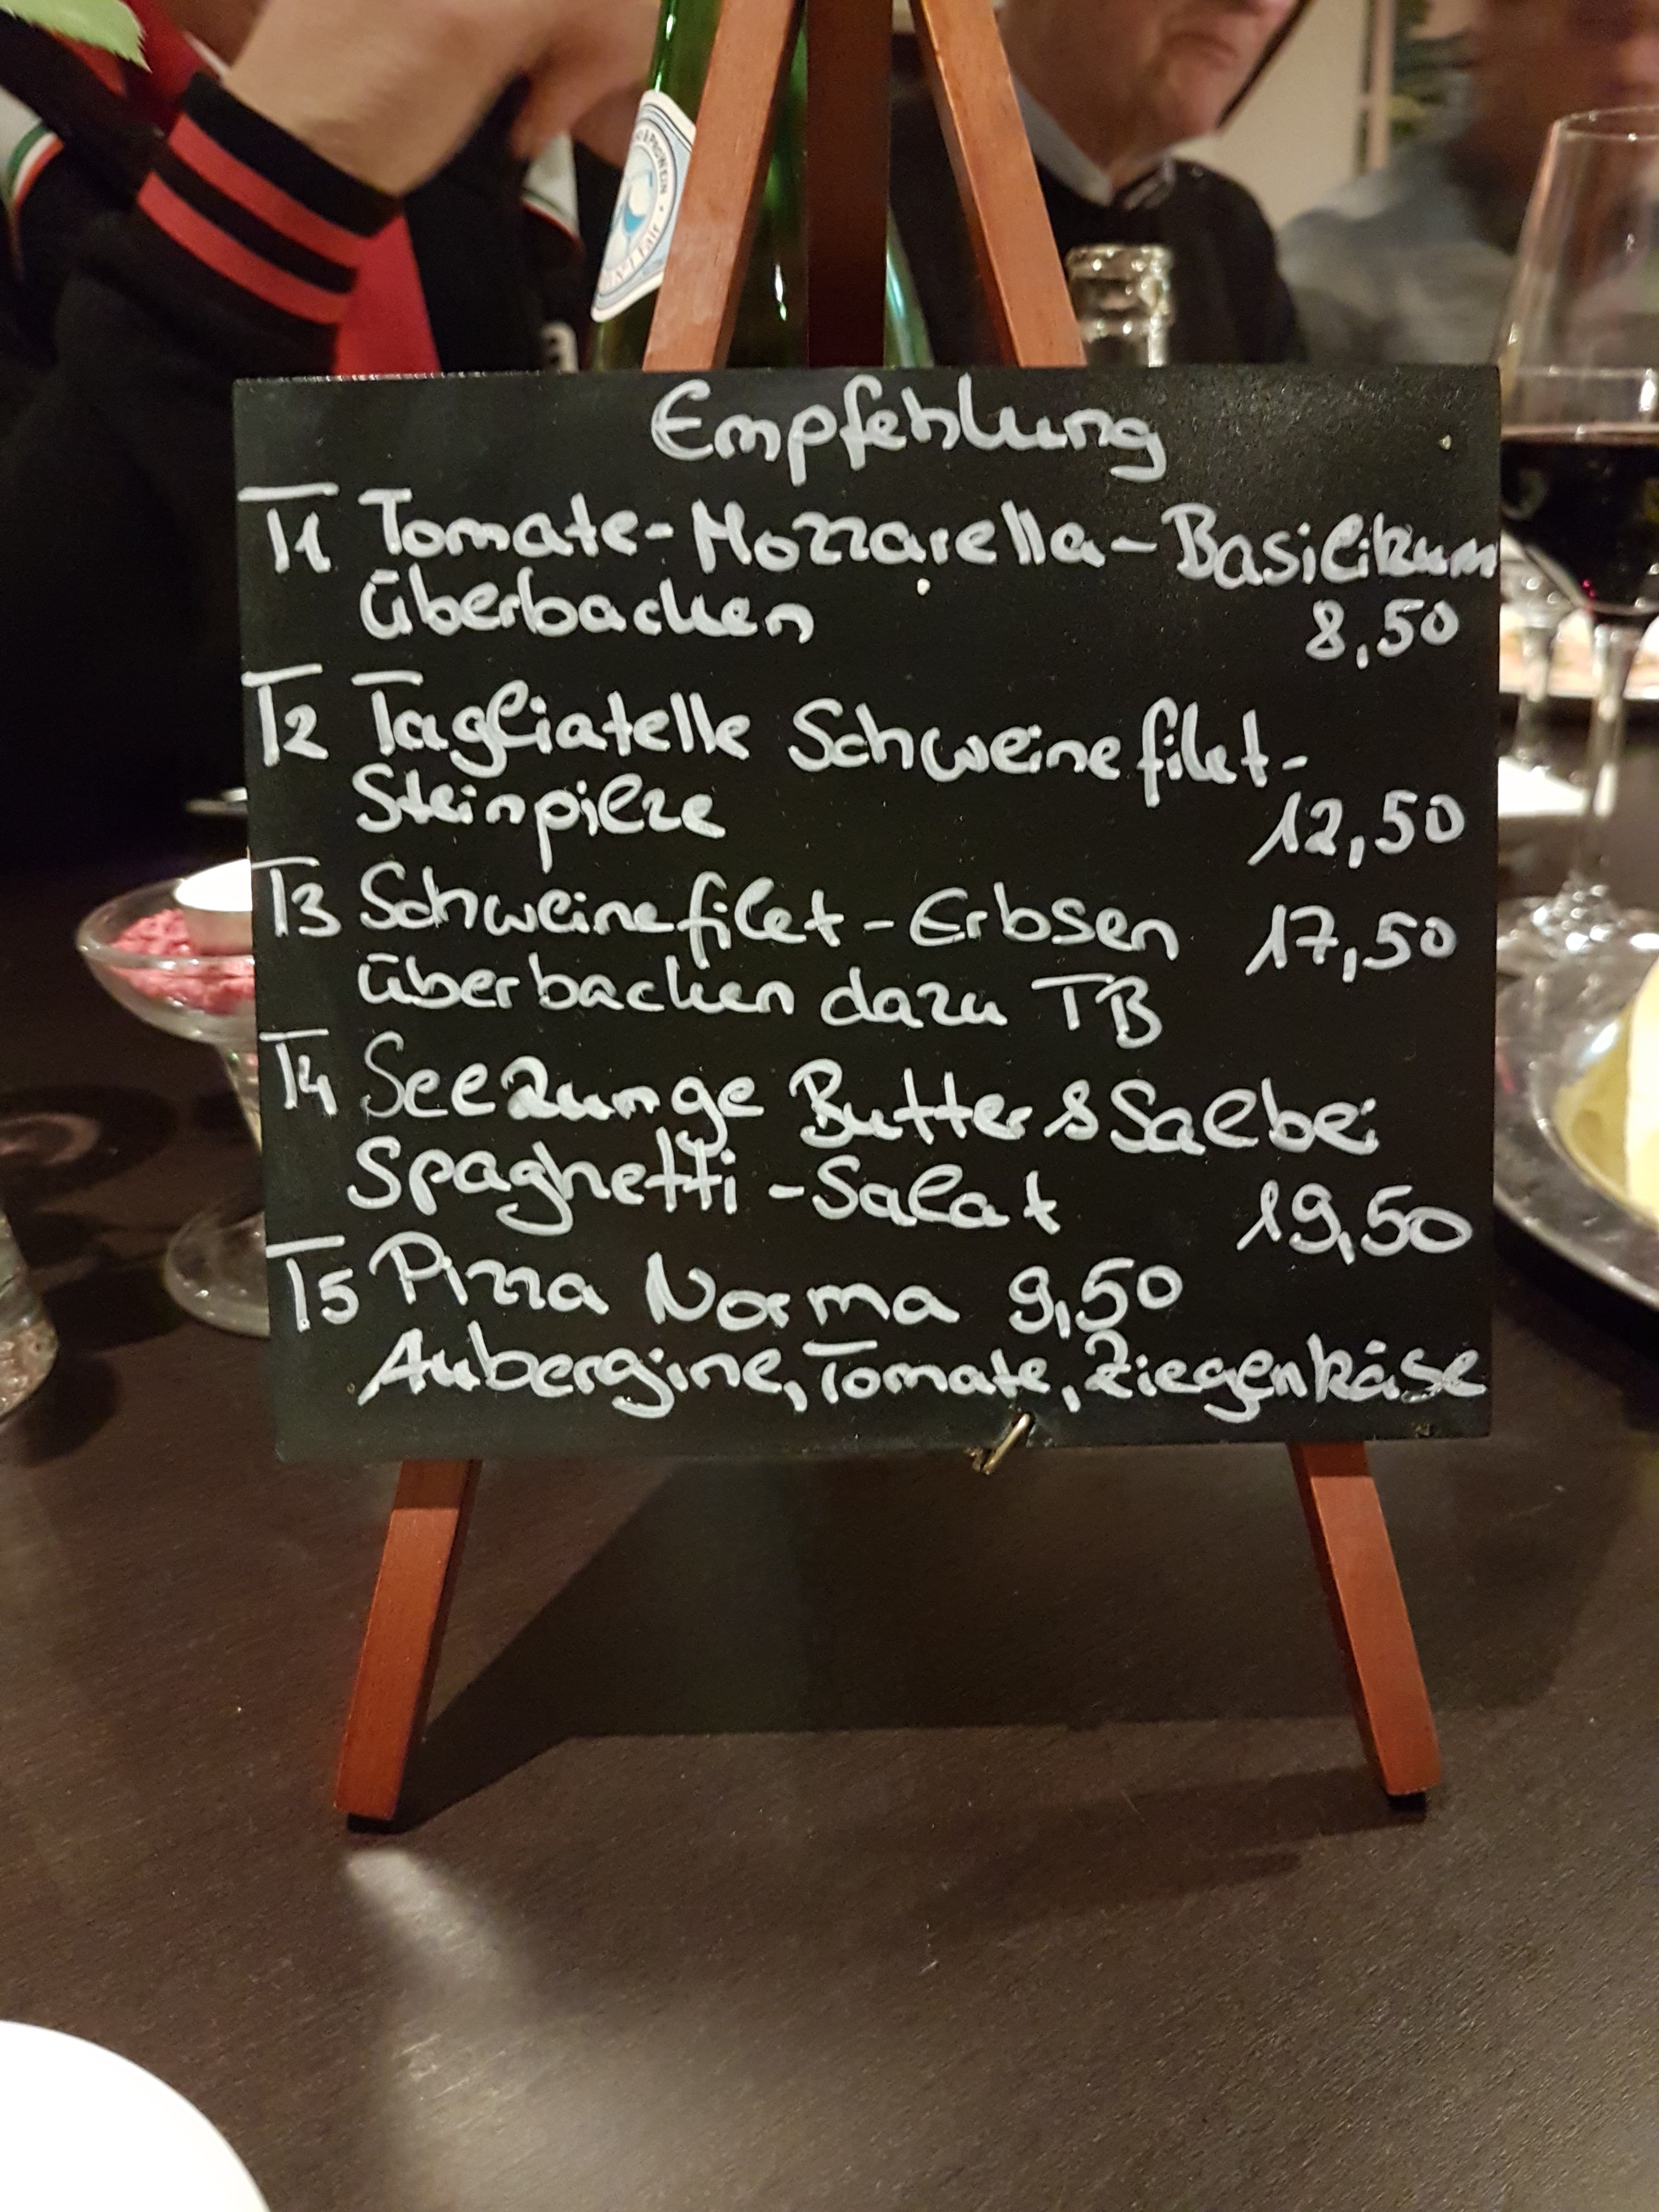 Empfehlung
T1 Tomate-Mozzarella-Basilikum
überbacken 8,50
T2 Tagliatelle Schweinefilet-
Steinpilze 12,50
T3 Schweinefilet-Erbsen 17,50
überbacken dazu TB
T4 Seezunge Butter & Salbei
Spaghetti-Salat 19,50
T5 Pizza Norma 9,50
Aubergine, Tomate, Ziegenkäse